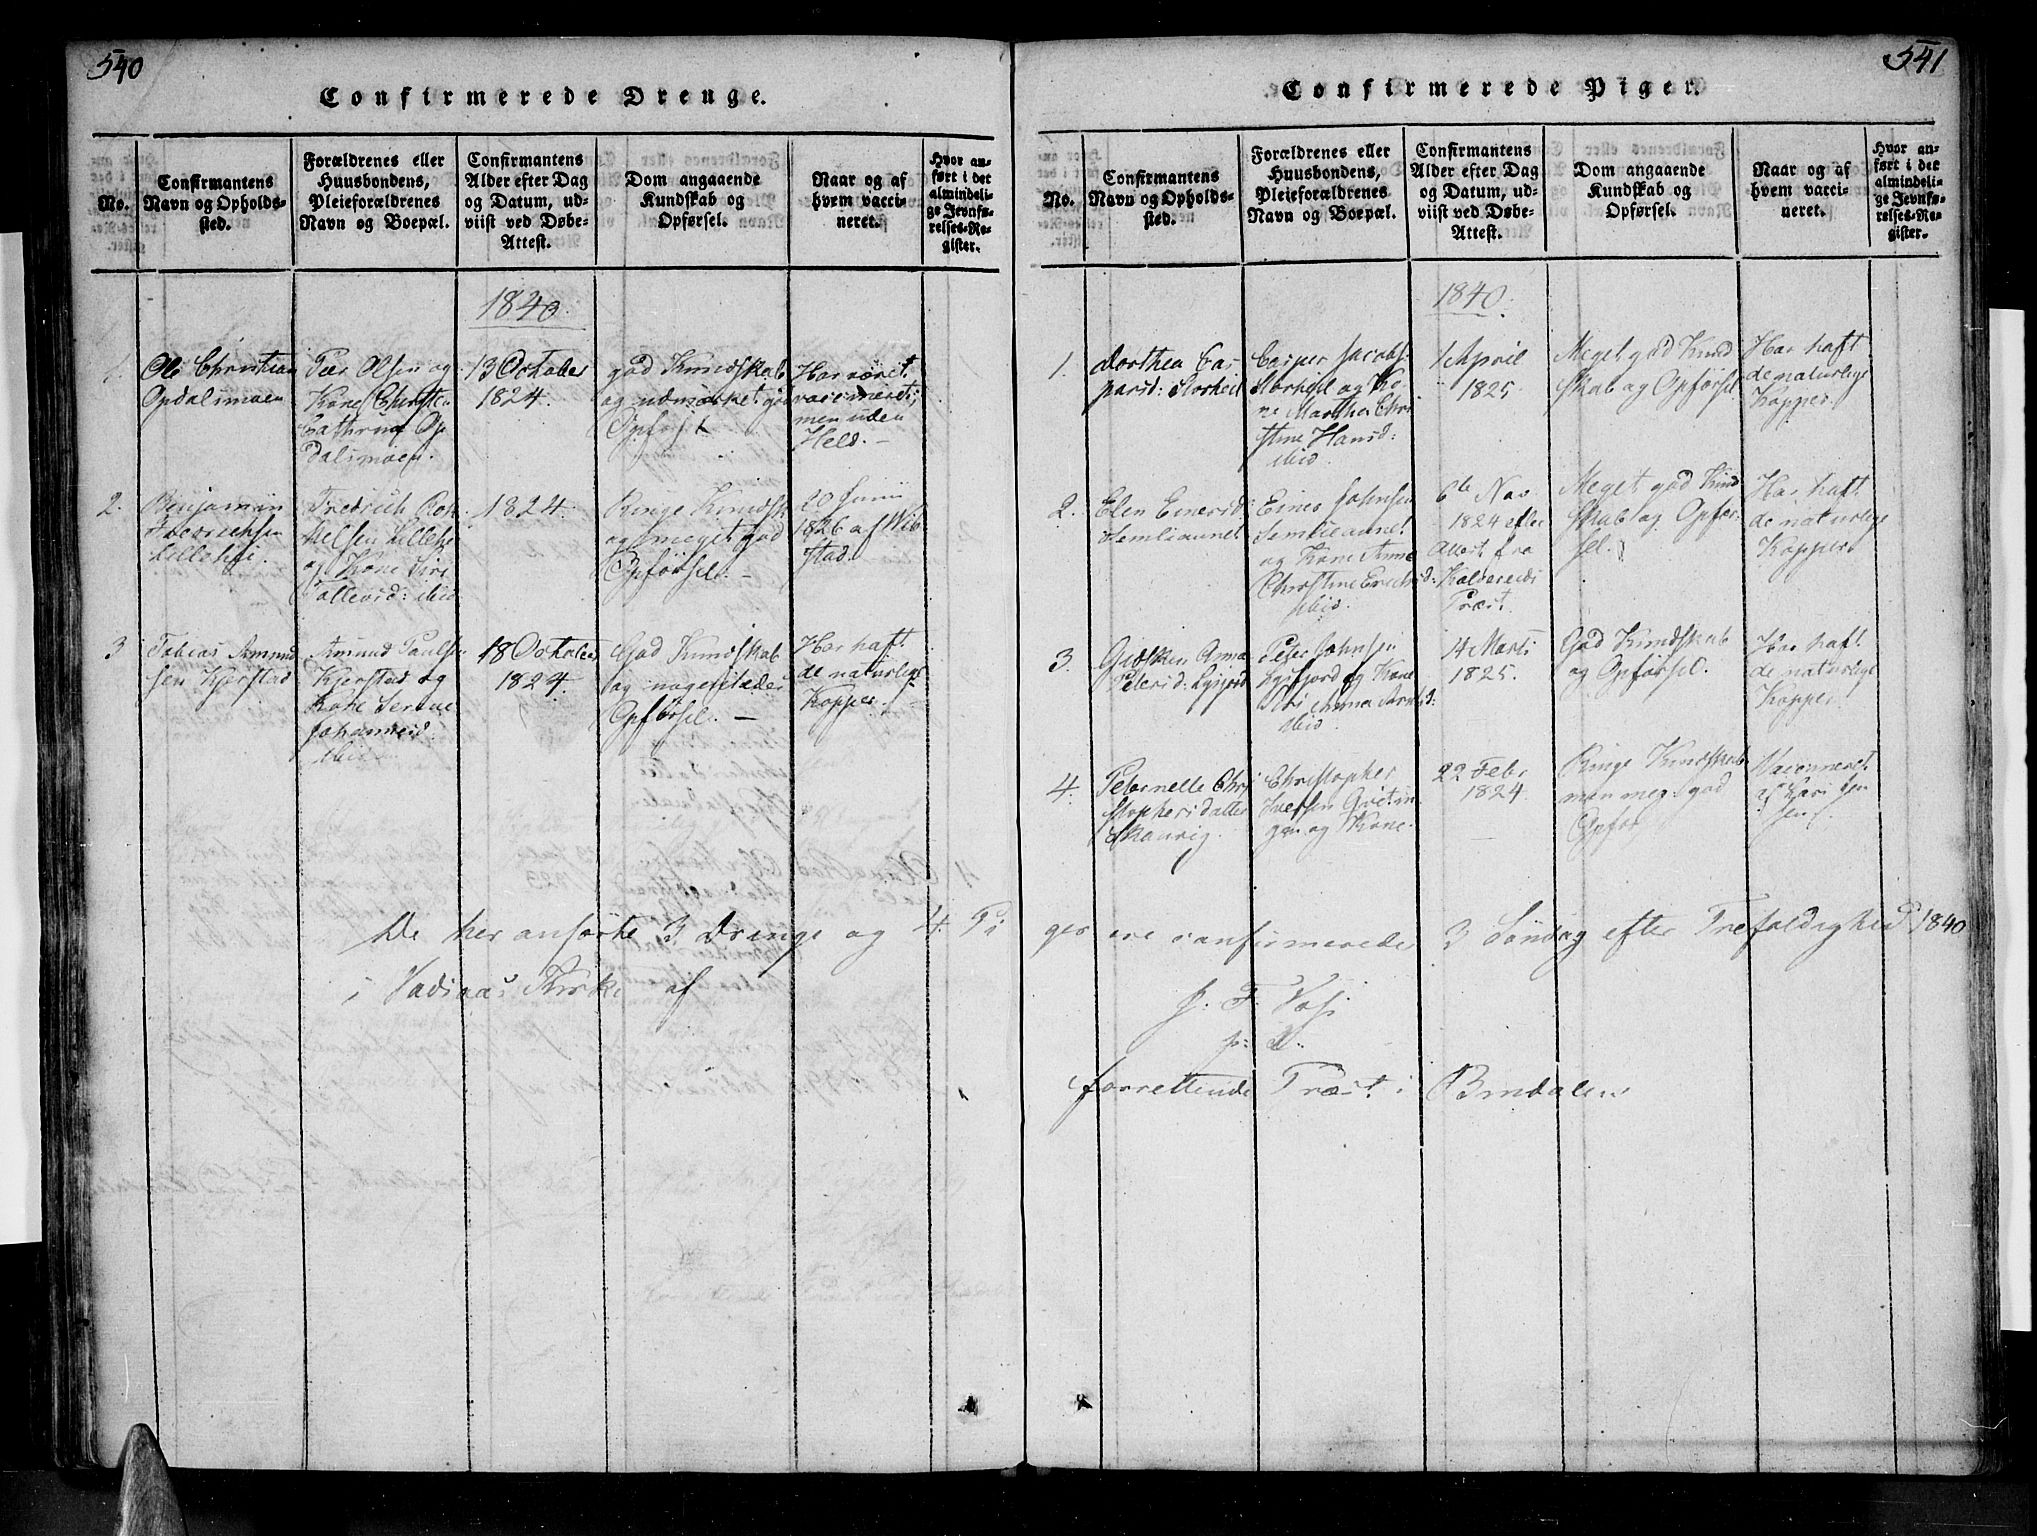 540
Confirmerede Drenge.
No.
Confirmantens
Navn og Opholds-
sted.
Forældrenes eller
Huusbondens,
Pleieforældrenes
Navn og Boepæl.
Confirmantens
Alder efter Dag
og Datum, ud-
viist ved Døbe-
Attest.
Dom angaaende
Kundskab og
Opførsel.
Naar og af
hvem vacci-
neret.
Hvor an-
ført i det
almindeli-
ge Jevnfø-
relses-Re-
gister.
1840.
1.
Ole Christian
Opdalsmoen
Peer Olsen og
Kone
Cathrina Op
dalsmoen.
13 October
1824.
god Kundskab
og udmærket god
Opførsel
Har været
vaccineret,
men uden
Held. –
2.
Benjamin
Fredrichsen
Lillehei.
Fredrich
Lillehei
og Kone Siri
Tollevsd: ibid
1824.
Ringe Kundsk
og meget god
Opførsel. –
20 Junii
1826 af Wib
stad.
3
Tobias Amund
sen Kjerstad
Amund Paulse
Kjerstad og
Kone Serine
Johannesd.
ibid
18 October
1824.
God Kundskab
og
Opførsel. –
Har haft
de naturlige
Kopper. –
De her anførte 3 Drenge og 4 Pi
i Vadsaas Kirke af
541
Confirmerede Piger.
No.
Confirmantens
Navn og Opholds-
sted.
Forældrenes eller
Huusbondens,
Pleieforældrenes
Navn og Boepæl.
Confirmantens
Alder efter Dag
og Datum, ud-
viist ved Døbe-
Attest.
Dom angaaende
Kundskab og
Opførsel.
Naar og af
hvem vacci-
neret.
Hvor an-
ført i det
almindeli-
ge Jevnfø-
relses-Re-
gister.
1840.
1.
Dorthea Cas
parsd: Storheil
Casper Jacobs:
Storheil og Ko-
ne Martha Chri
stine Hansd:
ibid.
1 April
1825
Meget god Kund
skab og Opførsel
Har haft
de naturlige
Kopper.
2.
Elen Einersd
Semliaunet
Einer Johnsen
Semliaunet
og Kone Anne
Christine Ericksd:
ibid.
6te Nov
1824 efter
Attest fra
Kolvereids
Præst.
Meget god Kund
skab og Opfør-
sel.
Har haft
de naturlige
Kopper.
3.
Gidsken Anna
Petersd: Lysfjord
Peter Johnsen
Lysfjord og Kone
Siri Anna
ibid.
14 Marts
1825.
God Kundskab
og Opførsel.
Har haft
de naturlige
Kopper.
4.
Peternelle Chri
stophersdatter
Skauvig.
Christopher
Iversen
gen og Kone.
22 Febr
1824
Ringe Kundskab
men meg. god
Opfør
Vaccineret
af
sen.
ger ere confirmerede 3 Søndag efter Trefoldighed 1840
J. F. Voss
p: t.
forrettende Præst i Bindalen